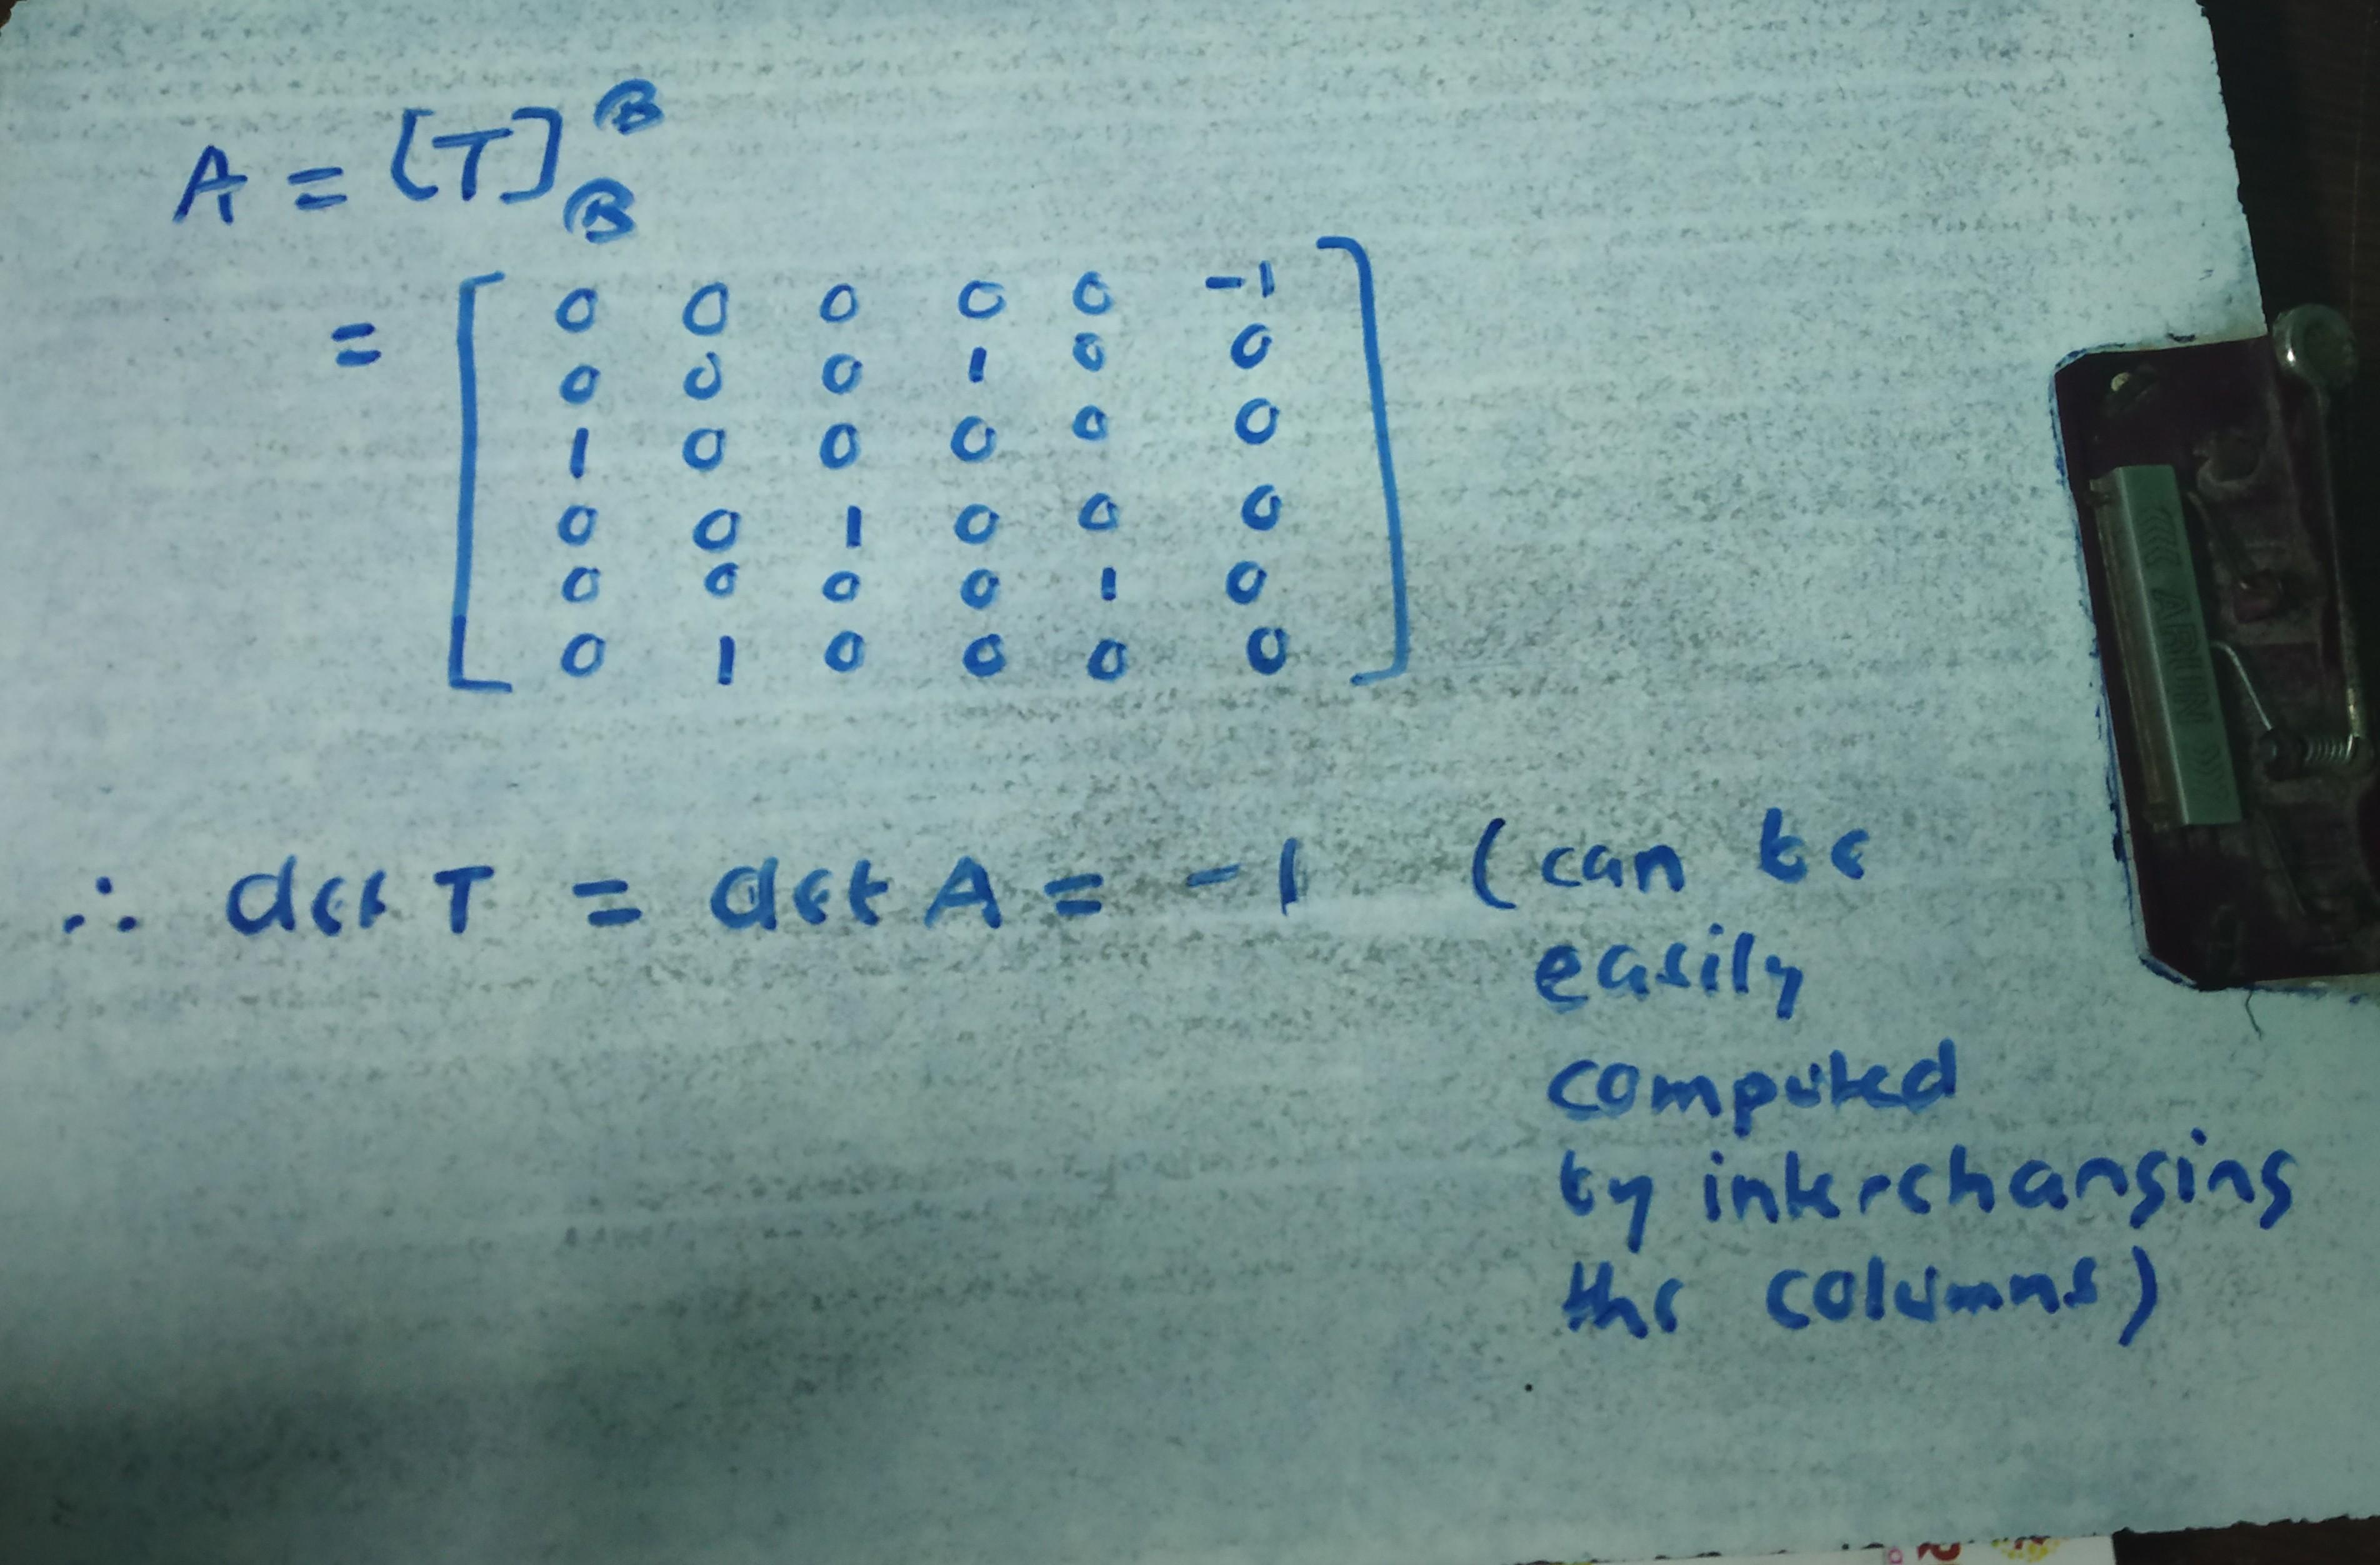 A = [T]_B^B
= [ 0 0 0 0 0 -1
0 0 0 1 0 0
1 0 0 0 0 0
0 0 1 0 0 0
0 0 0 0 1 0
0 1 0 0 0 0 ]
∴ det T = det A = -1 (can be
easily
computed
by interchanging
the columns)
ARUN